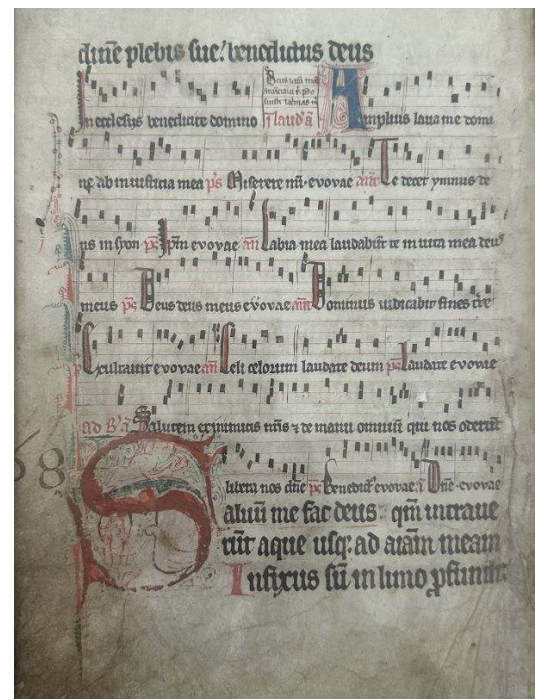 dn̄e plebis sue! benedictus deus
n ecclesijs benedicite domino
i laud' a᷃ Amplius laua me domi
ne ab iniusticia mea ps Miserere mi evovae an̄t Te decet ymnus de
us in syon ps Ip̄m evovae an̄ Labia mea laudabūt te in uita mea deus
meus ps Deus deus meus evovae an̄t Dominus iudicabit fines t͛re
ps Exultauit evovae an̄ Celi celorum laudate deum ps Laudate evovae
ad B a᷃ Salutem ex inimicis nr̄is ⁊ de manu omniū qui nos oderūt
68
libera nos dn̄e ps Benedict᷒ evovae Dn̄e evovae
Saluū me fac deus: qm̄ intraue
rūt aque usq; ad aīam meam
Infixus sū in limo ꝓfundi: